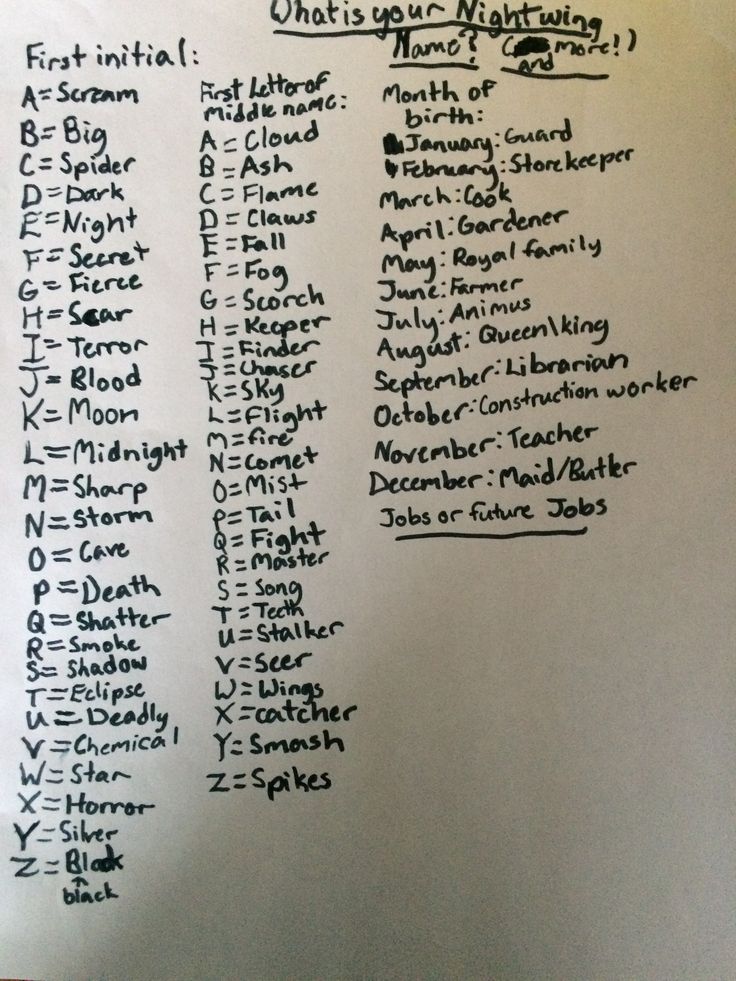 What is your Nightwing
Name? (and more!)
First initial:
A=Scream
B=Big
C=Spider
D=Dark
E=Night
F=Secret
G=Fierce
H=Scar
I=Terror
J=Blood
K=Moon
L=Midnight
M=Sharp
N=Storm
O=Cave
P=Death
Q=Shatter
R=Smoke
S=Shadow
T=Eclipse
U=Deadly
V=Chemical
W=Star
X=Horror
Y=Silver
Z=Black
black
First Letter of
middle name:
A=Cloud
B=Ash
C=Flame
D=Claws
E=Fall
F=Fog
G=Scorch
H=Keeper
I=Finder
J=Chaser
K=Sky
L=Flight
M=fire
N=Comet
O=Mist
P=Tail
Q=Fight
R=Master
S=Song
T=Teeth
U=Stalker
V=Seer
W=Wings
X=catcher
Y=Smash
Z=Spikes
Month of
birth:
January: Guard
February: Storekeeper
March: Cook
April: Gardener
May: Royal family
June: Farmer
July: Animus
August: Queen\king
September: Librarian
October: Construction worker
November: Teacher
December: Maid/Butler
Jobs or future Jobs